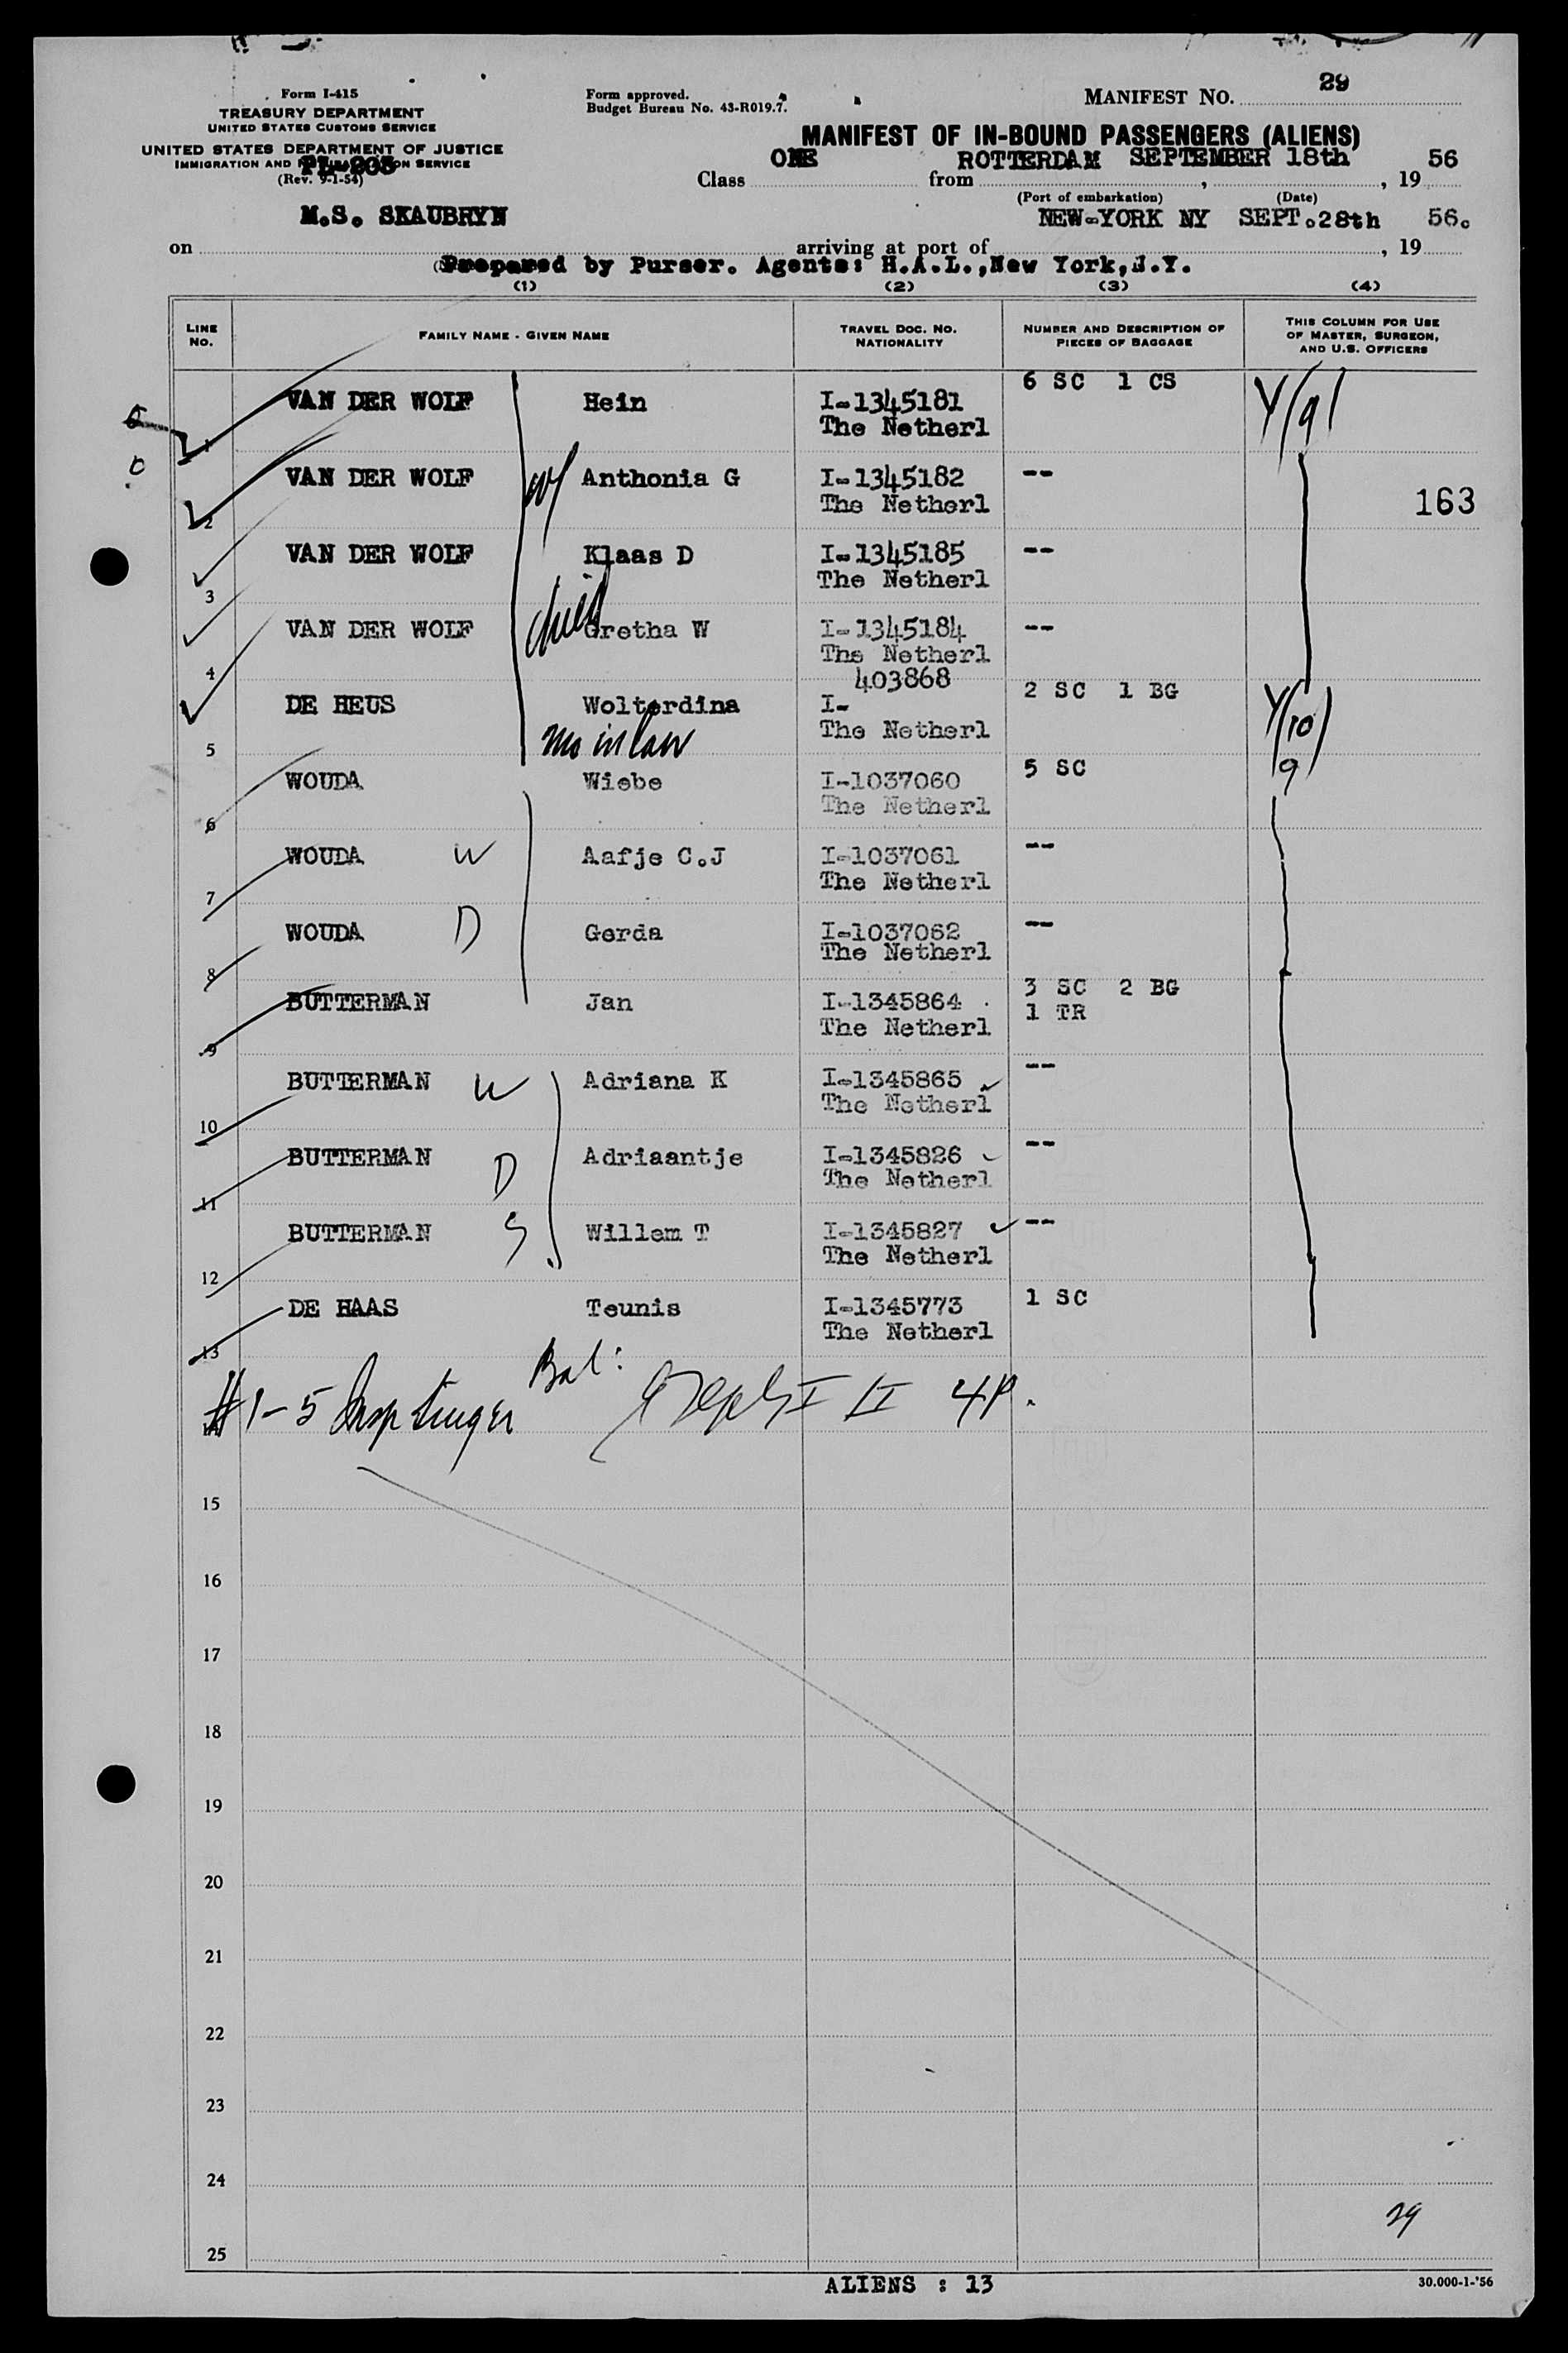 Form I-415
TREASURY DEPARTMENT
UNITED STATES CUSTOMS SERVICE
UNITED STATES DEPARTMENT OF JUSTICE
IMMIGRATION AND NATURALIZATION SERVICE
(Rev. 9-1-54)
Form approved.
Budget Bureau No. 43-R019.7.
MANIFEST NO. 29
MANIFEST OF IN-BOUND PASSENGERS (ALIENS)
Class ONE from ROTTERDAM, SEPTEMBER 18th, 19 56
(Port of embarkation) (Date)
on M.S. SKAUBRYN arriving at port of NEW-YORK NY SEPT.28th, 19 56.
Prepared by Purser. Agents: H.A.L.,New York,N.Y.
(1) (2) (3) (4)
LINE NO. FAMILY NAME - GIVEN NAME TRAVEL DOC. NO. NATIONALITY NUMBER AND DESCRIPTION OF PIECES OF BAGGAGE THIS COLUMN FOR USE OF MASTER, SURGEON, AND U.S. OFFICERS
1 VAN DER WOLF Hein I-1345181 The Netherl 6 SC 1 CS Y/9/
2 VAN DER WOLF W Anthonia G I-1345182 The Netherl -- 163
3 VAN DER WOLF Klaas D I-1345185 The Netherl --
4 VAN DER WOLF child Gretha W I-1345184 The Netherl --
5 DE HEUS Wolterdina I-403868 The Netherl 2 SC 1 BG Y/10/
mo in law
6 WOUDA Wiebe I-1037060 The Netherl 5 SC /9/
7 WOUDA W Aafje C.J I-1037061 The Netherl --
8 WOUDA D Gerda I-1037062 The Netherl --
9 BUTTERMAN Jan I-1345864 The Netherl 3 SC 2 BG 1 TR
10 BUTTERMAN W Adriana K I-1345865 The Netherl --
11 BUTTERMAN D Adriaantje I-1345826 The Netherl --
12 BUTTERMAN S Willem T I-1345827 The Netherl --
13 DE HAAS Teunis I-1345773 The Netherl 1 SC
14 #1-5 Insp Bal: 4P.
15
16
17
18
19
20
21
22
23
24
29
25
ALIENS : 13
30.000-1-'56